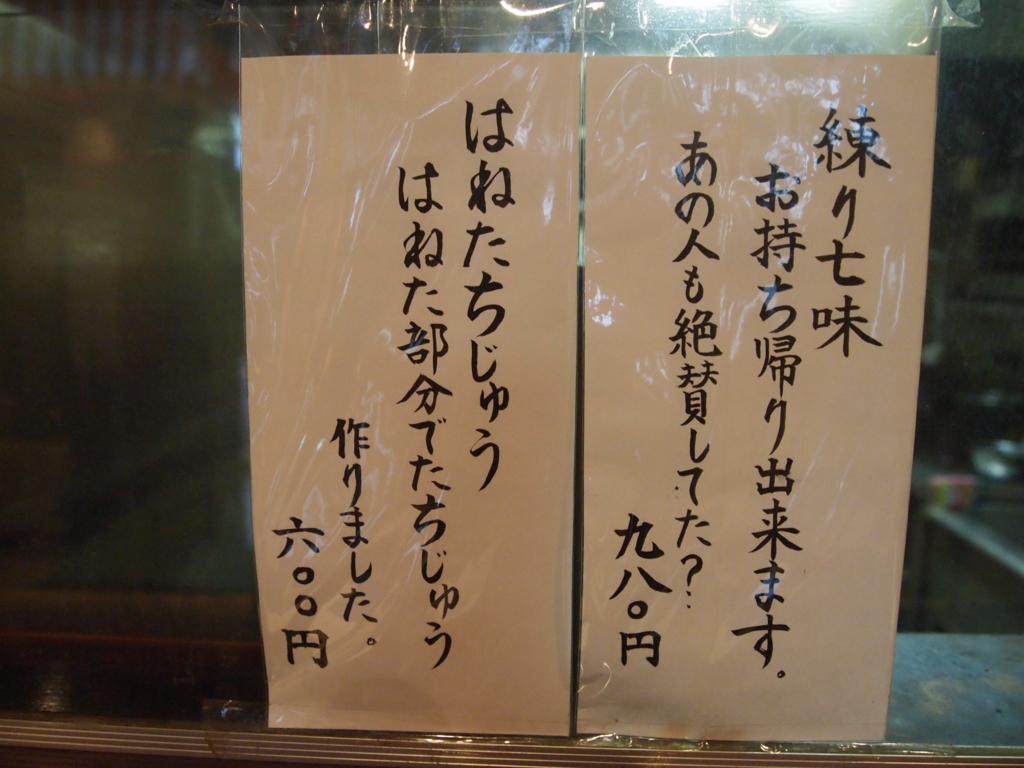 練り七味
お持ち帰り出来ます。
あの人も絶賛してた?…
九八〇円
はねたちじゅう
はねた部分でたちじゅう
作りました。
六〇〇円